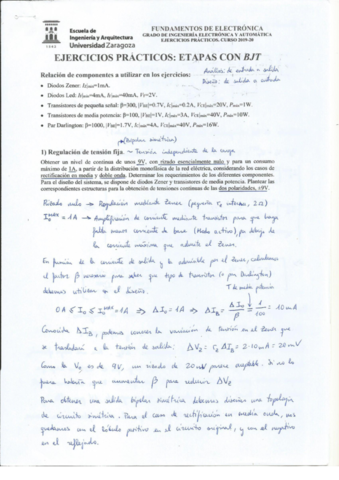 Escuela de
Ingeniería y Arquitectura
Universidad Zaragoza
FUNDAMENTOS DE ELECTRÓNICA
GRADO DE INGENIERÍA ELECTRÓNICA Y AUTOMÁTICA
EJERCICIOS PRÁCTICOS. CURSO 2019-20
EJERCICIOS PRÁCTICOS: ETAPAS CON BJT
Análisis: de entrada a salida
Diseño: de salida a entrada
Relación de componentes a utilizar en los ejercicios:
• Diodos Zener: Iz|min=1mA.
• Diodos Led: If|min=4mA, If|max=40mA, Vf=2V.
• Transistores de pequeña señal: β=300, |VBE|=0.7V, Ic|max=0.2A, VCE|max=20V, Pmax=1W.
• Transistores de media potencia: β=100, |VBE|=1V, Ic|max=3A, VCE|max=40V, Pmax=16W.
• Par Darlington: β=1000, |VBE|=1.7V, Ic|max=4A, VCE|max=40V, Pmax=16W.
1) Regulación de tensión fija. ~ Tensión independiente de la carga
Obtener un nivel de continua de unos 9V, con rizado esencialmente nulo y para un consumo
máximo de 1A, a partir de la distribución monofásica de la red eléctrica, considerando los casos de
rectificación en media y doble onda. Determinar los requerimientos de los diferentes componentes.
Para el diseño del sistema, se dispone de diodos Zener y transistores de media potencia. Plantear las
correspondientes estructuras para la obtención de tensiones continuas de las dos polaridades, ±9V.
Rizado nulo → Regulación mediante Zener (pequeña rz interna, 2Ω)
Io max = 1A → Amplificación de corriente mediante transistor para que tenga
la corriente máxima que admite el Zener.
En función de la corriente de salida y la admisible por el Zener, calculamos
el factor β necesario para saber qué tipo de transistor (o par Darlington)
debemos utilizar en el diseño.
T de media potencia
0A ≤ Io ≤ Io max = 1A → ΔIo = 1A → ΔIB = ΔIo/β = 1/100 = 10mA
Conocida ΔIB, podemos conocer la variación de tensión en el Zener que
se trasladará a la tensión de salida: ΔVz = rz ΔIB = 2·10mA = 20mV
Como la Vo es de 9V, un rizado de 20mV parece aceptable. Si no lo
fuera habría que aumentar β para reducir ΔVz
Para obtener una salida bipolar simétrica debemos diseñar una topología
de circuito simétrica. Para el caso de rectificación en media onda, nos
quedamos con el ciclo positivo en el circuito original, y con el negativo
en el reflejado.